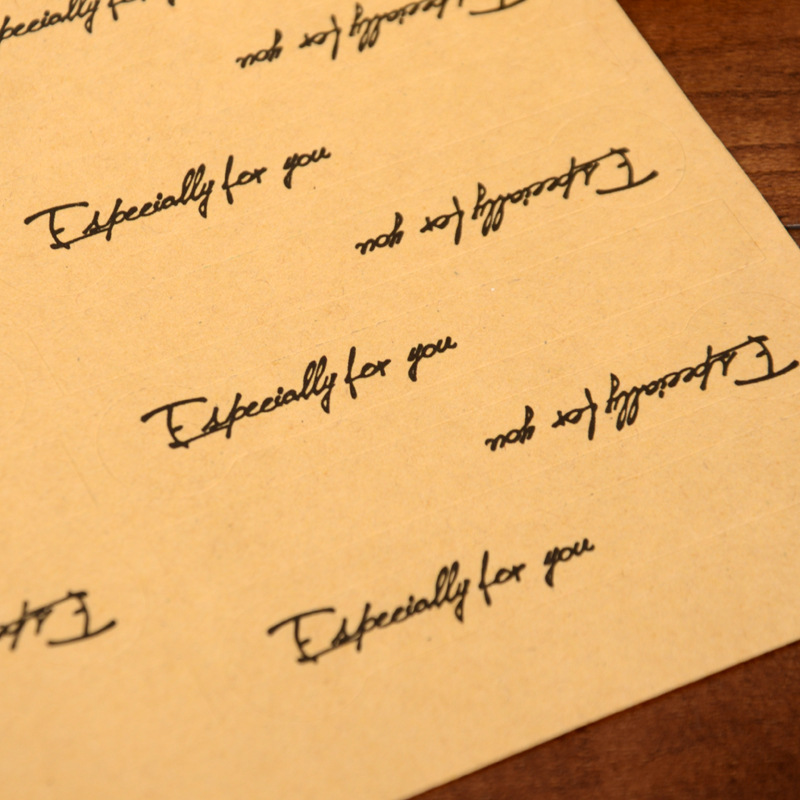 Especially for you
Especially for you
Especially for you
Especially for you
Especially for you
Especially for you
Especially for you